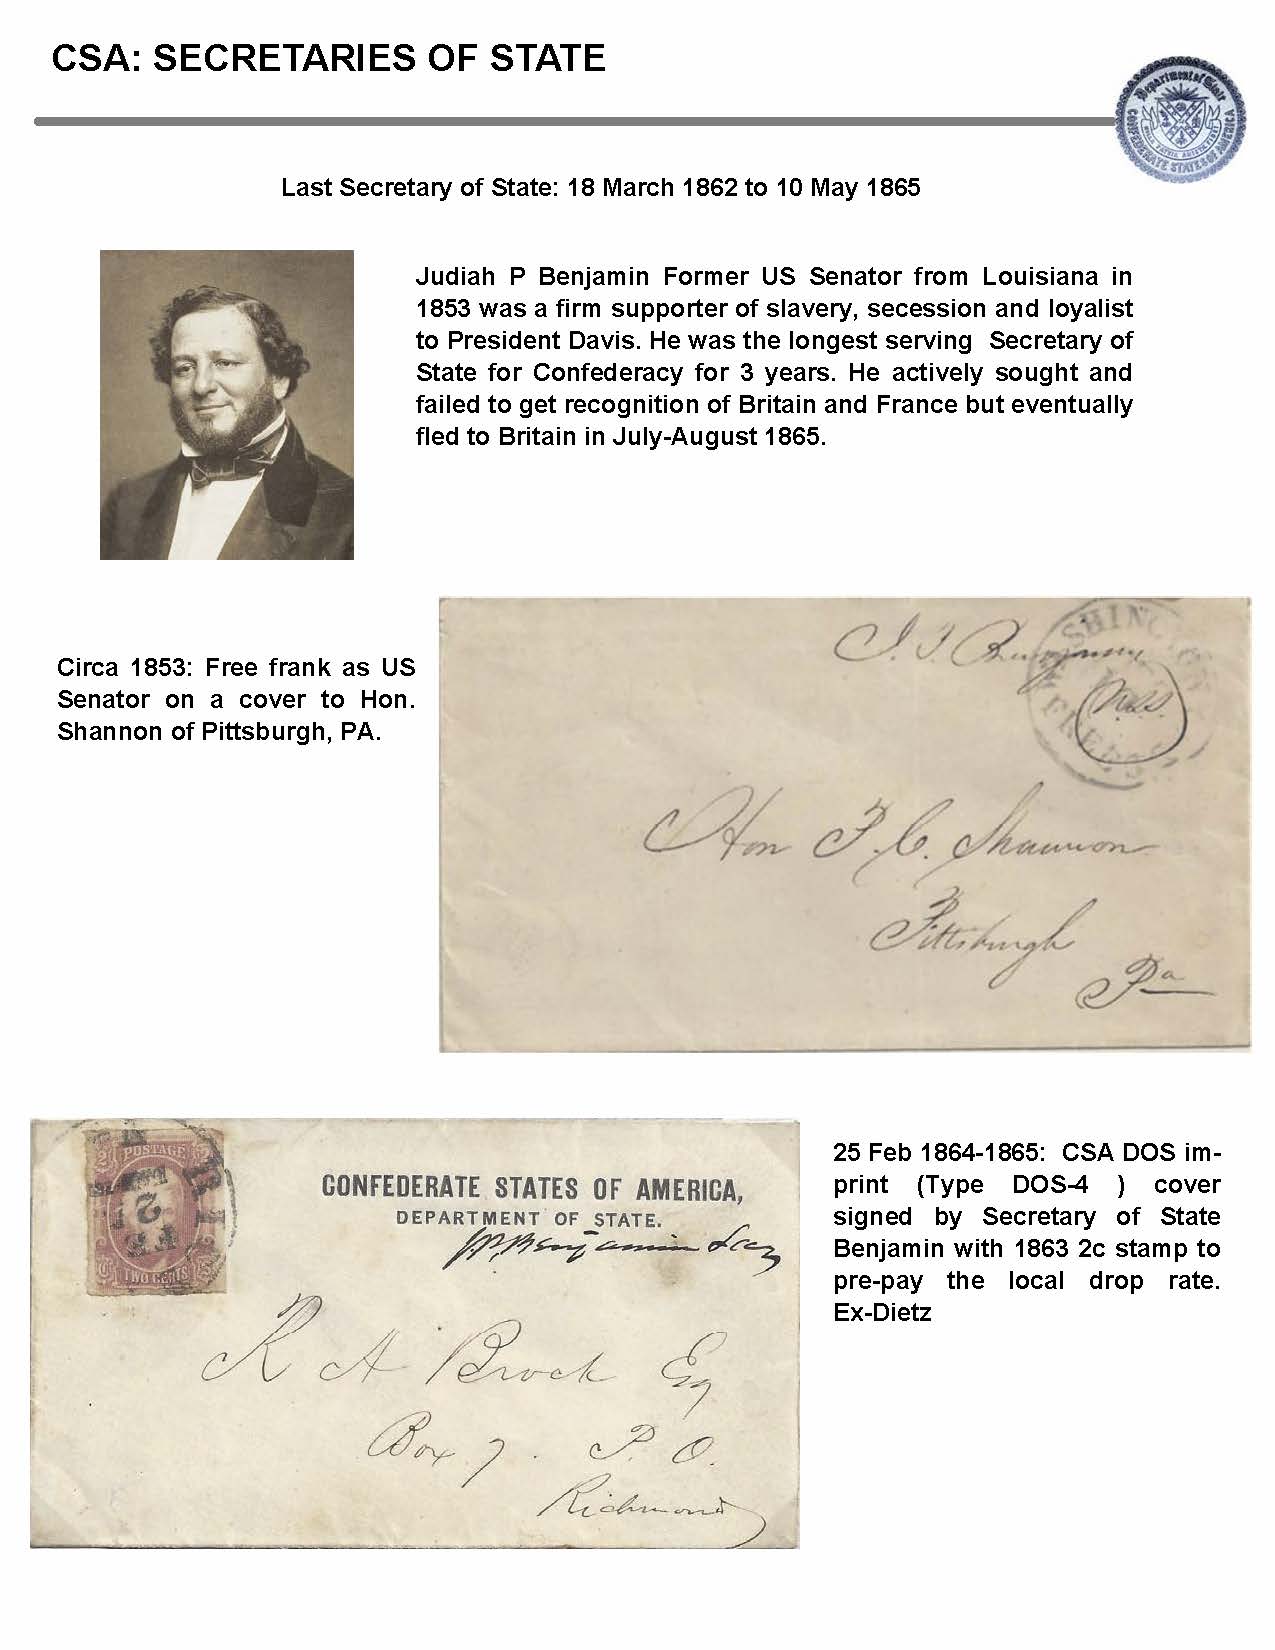 CSA: SECRETARIES OF STATE
Department of State
CONFEDERATE STATES OF AMERICA
Last Secretary of State: 18 March 1862 to 10 May 1865
Judiah P Benjamin Former US Senator from Louisiana in
1853 was a firm supporter of slavery, secession and loyalist
to President Davis. He was the longest serving Secretary of
State for Confederacy for 3 years. He actively sought and
failed to get recognition of Britain and France but eventually
fled to Britain in July-August 1865.
Circa 1853: Free frank as US
Senator on a cover to Hon.
Shannon of Pittsburgh, PA.
J. P. Benjamin
FREE
Hon P. C. Shannon
Pittsburgh
Pa
POSTAGE
TWO CENTS
CONFEDERATE STATES OF AMERICA,
DEPARTMENT OF STATE.
J.P. Benjamin Sec
R A Brock Esq
Box 7. P. O.
Richmond
25 Feb 1864-1865: CSA DOS im-
print (Type DOS-4 ) cover
signed by Secretary of State
Benjamin with 1863 2c stamp to
pre-pay the local drop rate.
Ex-Dietz